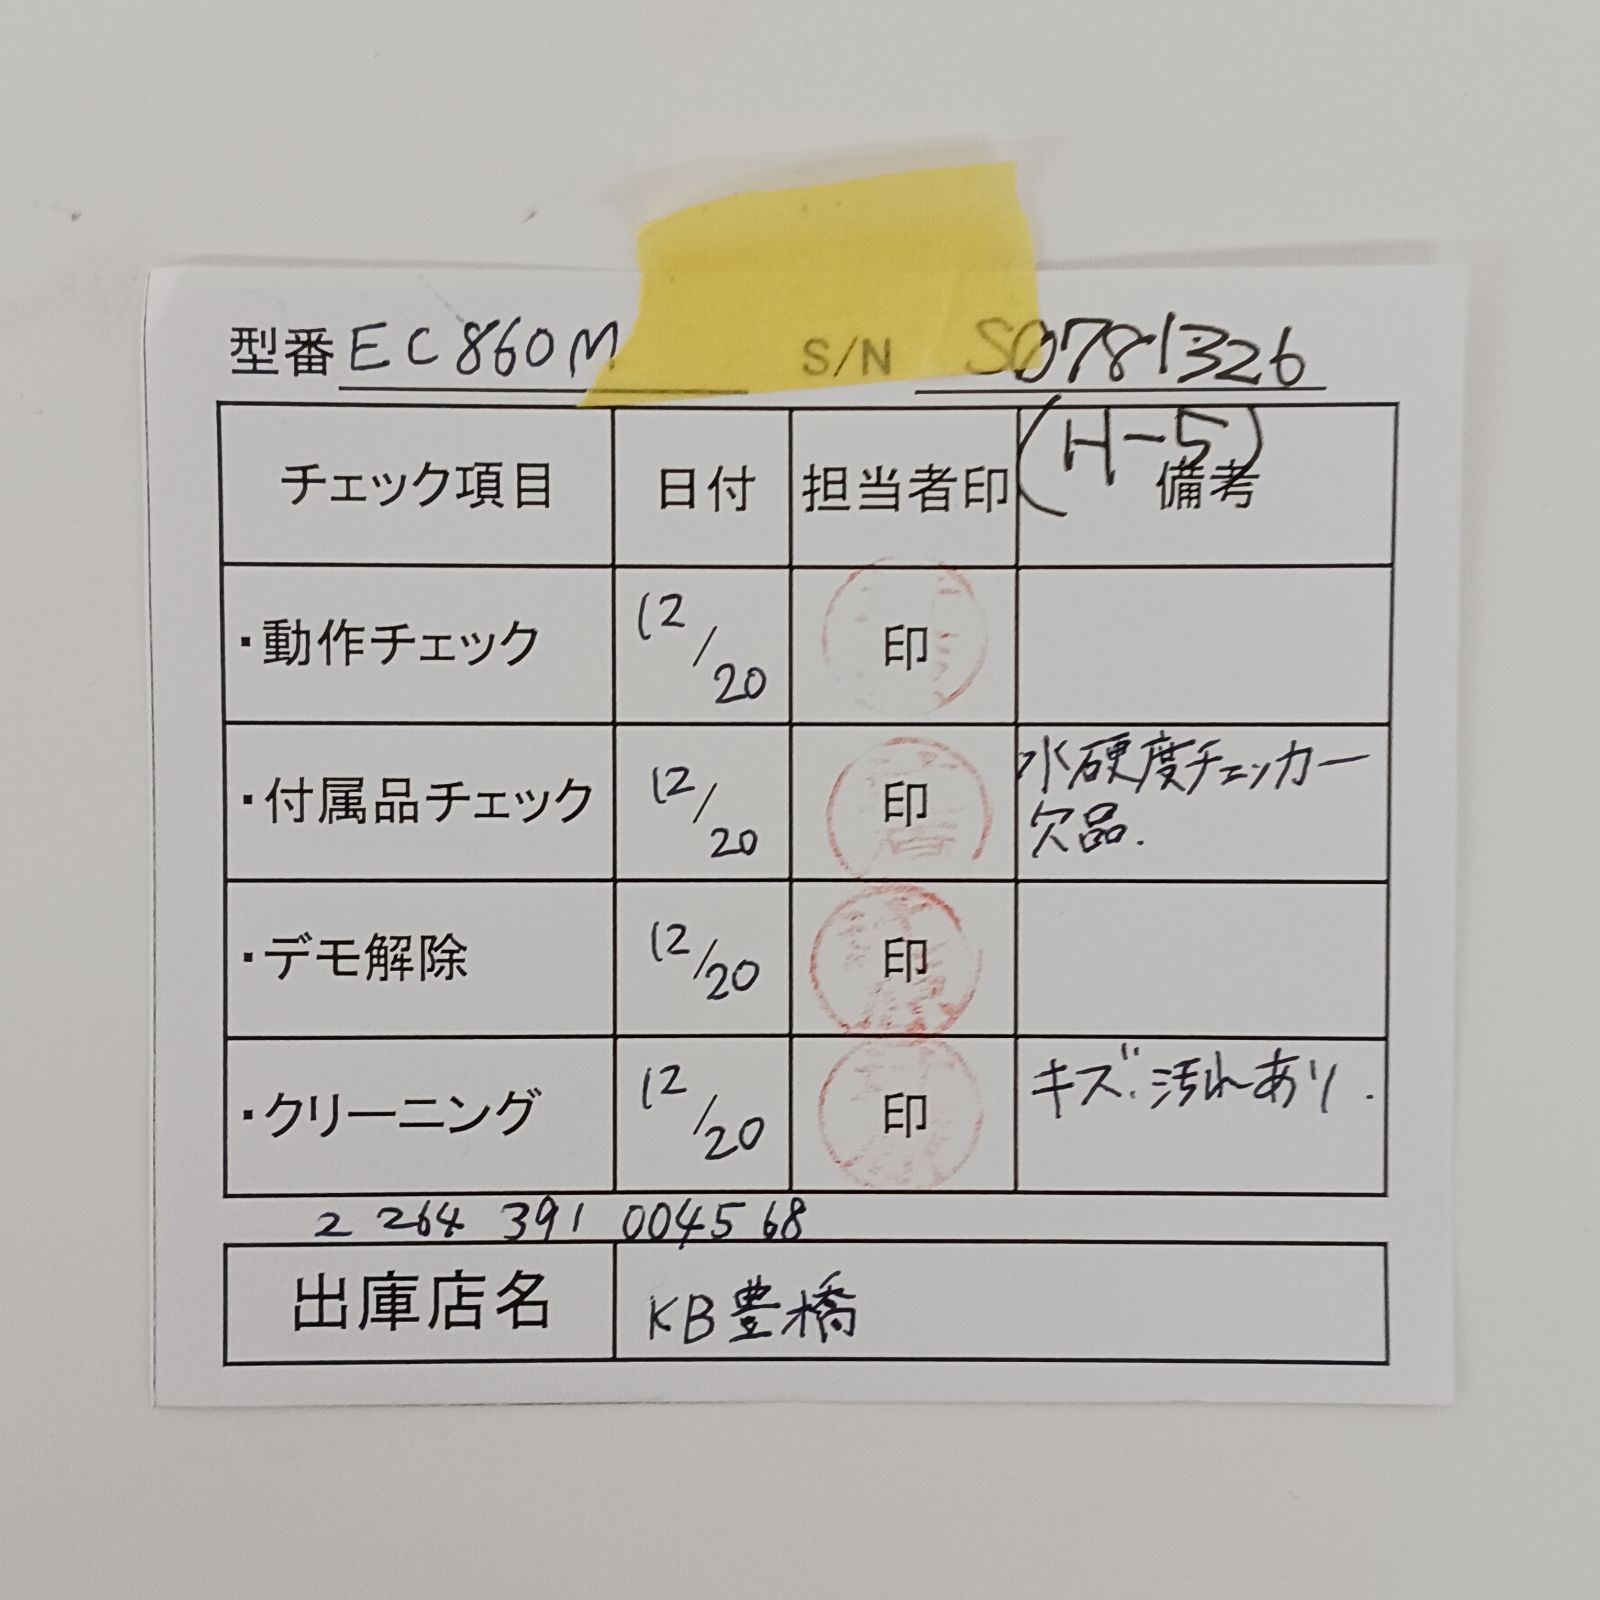 型番 EC860M S/N S0781326
チェック項目 日付 担当者印 (H-5) 備考
・動作チェック 12/20 印
・付属品チェック 12/20 印 水硬度チェッカー
欠品.
・デモ解除 12/20 印
・クリーニング 12/20 印 キズ.汚れあり.
2 264 391 004568
出庫店名 KB豊橋